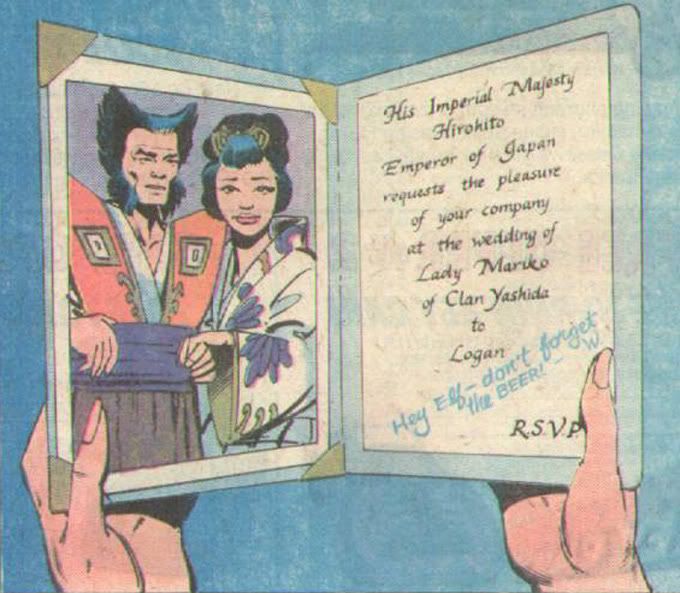 His Imperial Majesty
Hirohito
Emperor of Japan
requests the pleasure
of your company
at the wedding of
Lady Mariko
of Clan Yashida
to
Logan
Hey Elf – don't forget
the BEER! –
W
R.S.V.P.